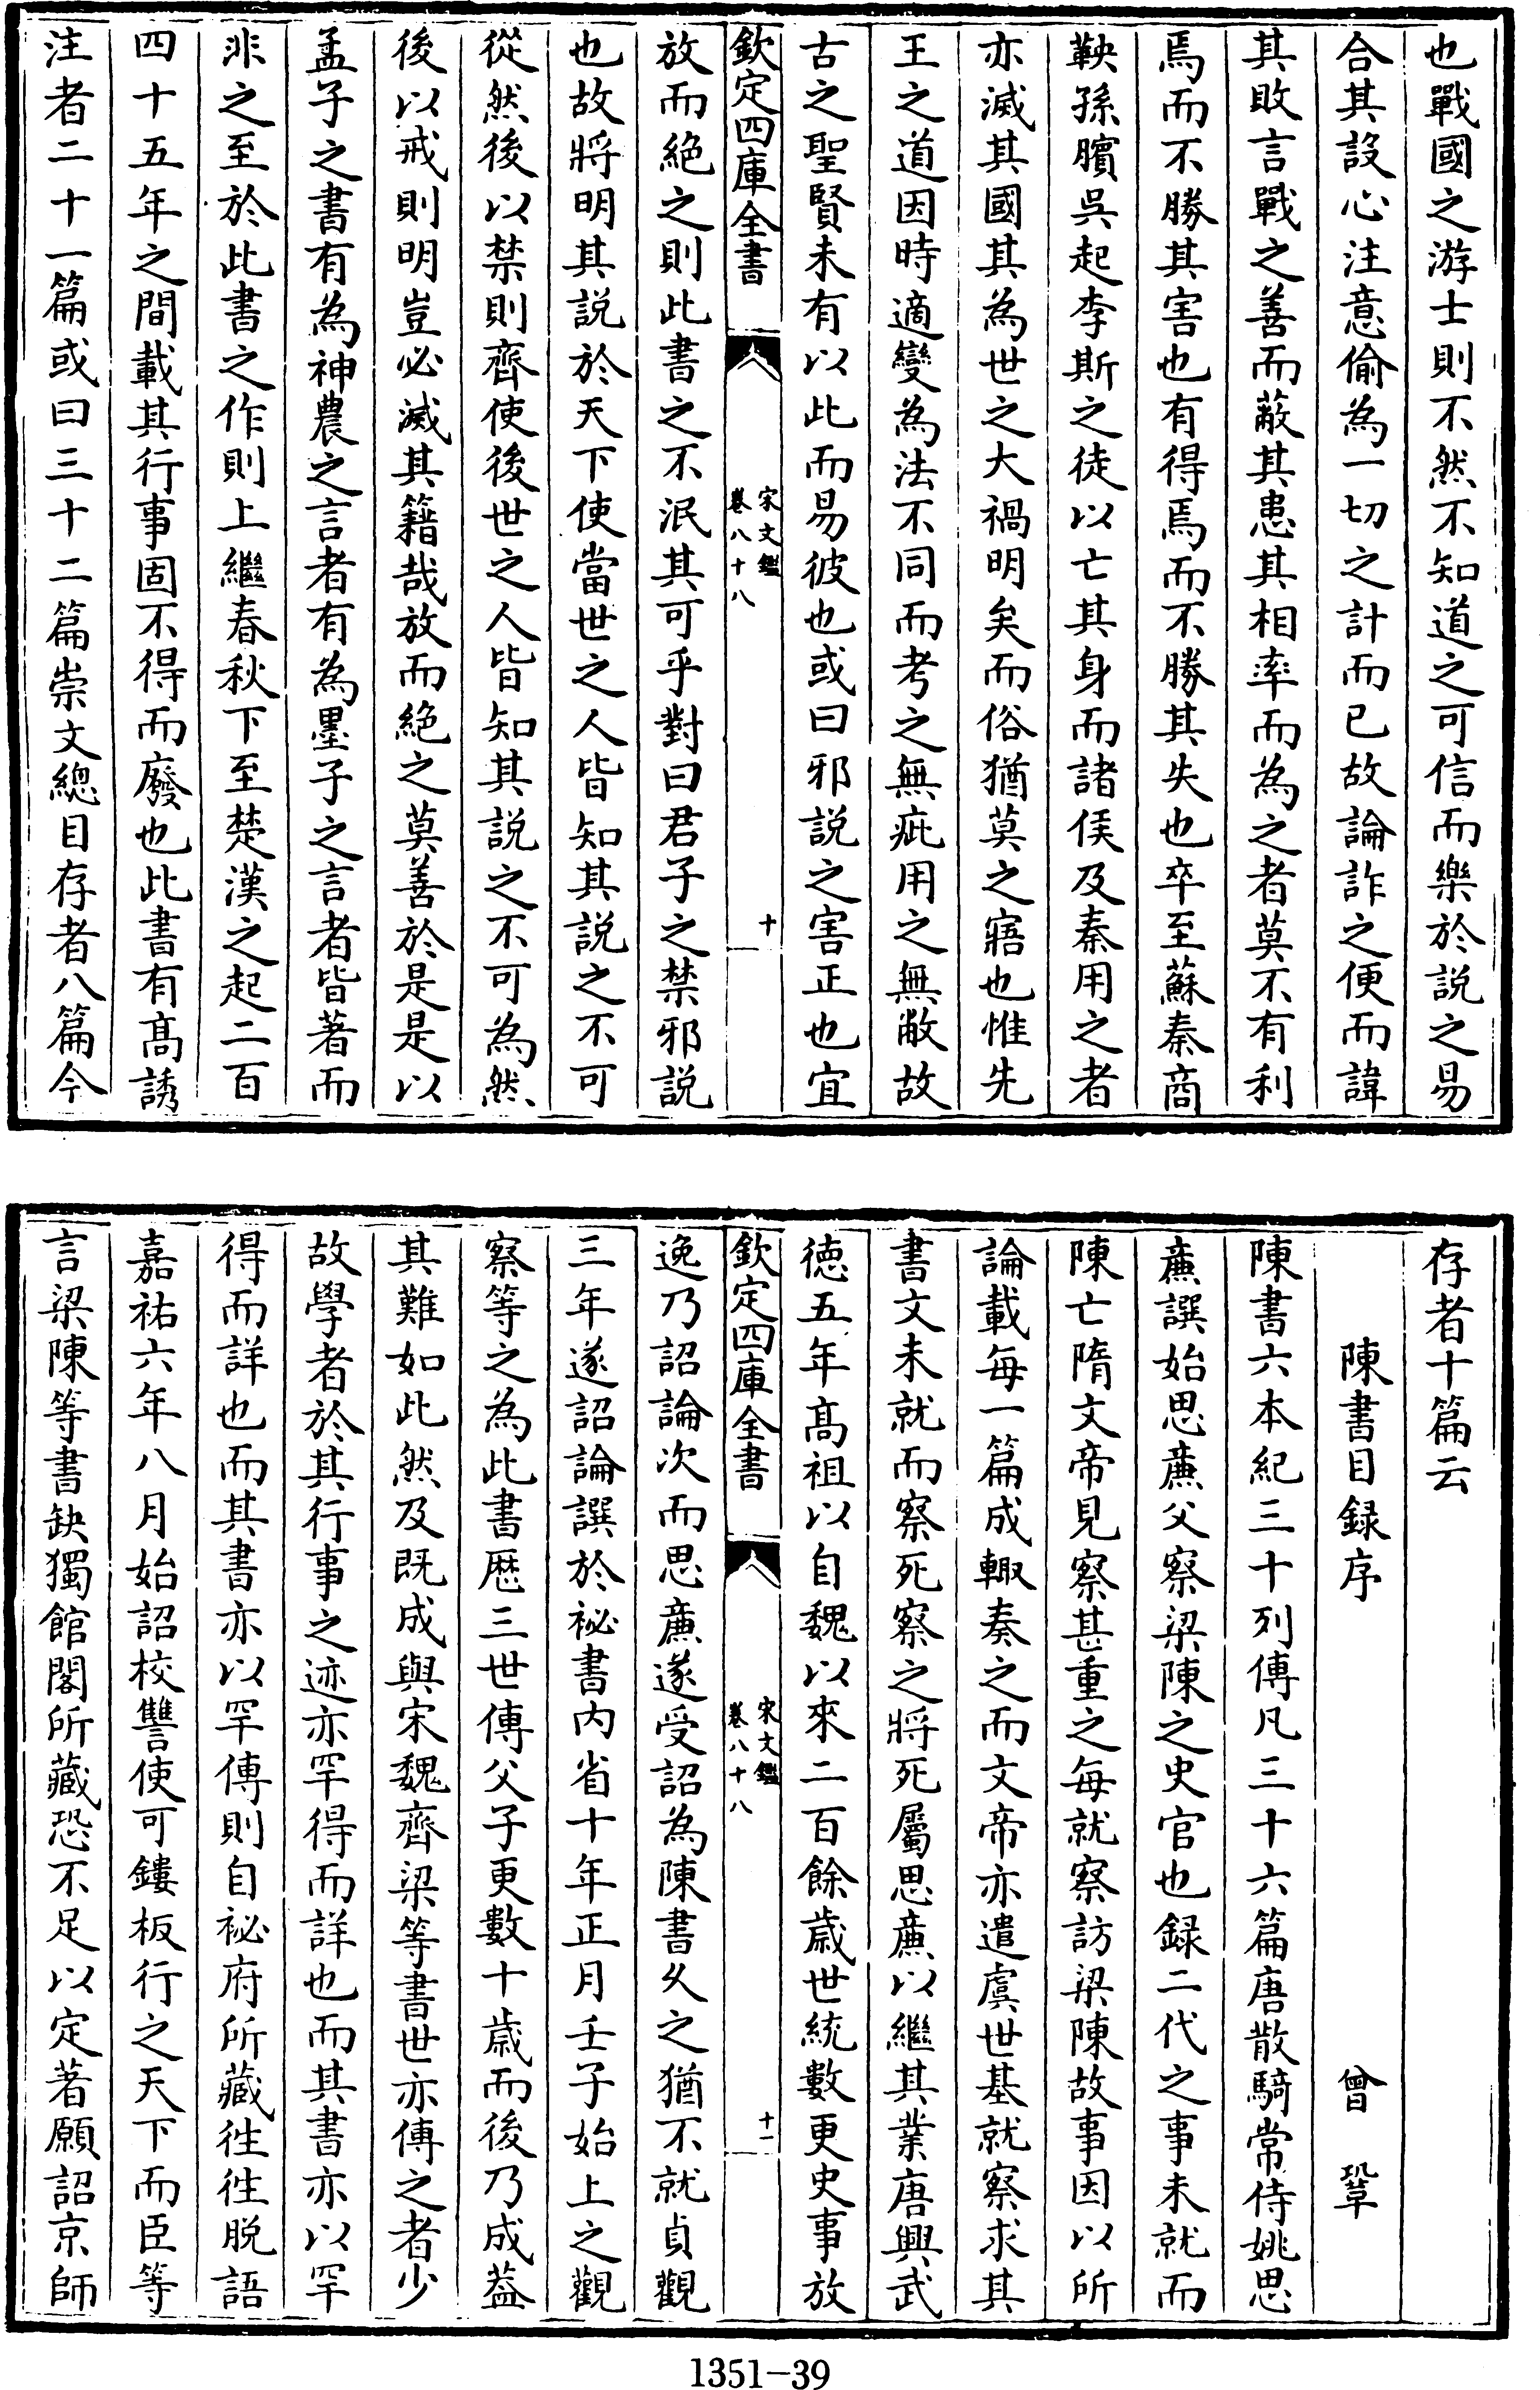 也戰國之游士則不然不知道之可信而樂於說之易
合其設心注意偷為一切之計而已故論詐之便而諱
其敗言戰之善而蔽其患其相率而為之者莫不有利
焉而不勝其害也有得焉而不勝其失也卒至蘇秦商
鞅孫臏吳起李斯之徒以亡其身而諸侯及秦用之者
亦滅其國其為世之大禍明矣而俗猶莫之寤也惟先
王之道因時適變為法不同而考之無疵用之無敝故
古之聖賢未有以此而易彼也或曰邪說之害正也宜
欽定四庫全書
宋文鑑
卷八十八
十
放而絕之則此書之不泯其可乎對曰君子之禁邪說
也故將明其說於天下使當世之人皆知其說之不可
從然後以禁則齊使後世之人皆知其說之不可為然
後以戒則明豈必滅其籍哉放而絕之莫善於是是以
孟子之書有為神農之言者有為墨子之言者皆著而
非之至於此書之作則上繼春秋下至楚漢之起二百
四十五年之間載其行事固不得而廢也此書有髙誘
注者二十一篇或曰三十二篇崇文總目存者八篇今
存者十篇云
陳書目録序
曾鞏
陳書六本紀三十列傳凡三十六篇唐散騎常侍姚思
亷譔始思亷父察梁陳之史官也録二代之事未就而
陳亡隋文帝見察甚重之每就察訪梁陳故事因以所
論載每一篇成輙奏之而文帝亦遣虞世基就察求其
書文未就而察死察之將死屬思亷以繼其業唐興武
徳五年髙祖以自魏以來二百餘歲世統數更史事放
欽定四庫全書
宋文鑑
卷八十八
十一
逸乃詔論次而思亷遂受詔為陳書久之猶不就貞觀
三年遂詔論譔於祕書内省十年正月壬子始上之觀
察等之為此書歴三世傳父子更數十歲而後乃成葢
其難如此然及既成與宋魏齊梁等書世亦傳之者少
故學者於其行事之迹亦罕得而詳也而其書亦以罕
得而詳也而其書亦以罕傳則自祕府所藏徃徃脫語
嘉祐六年八月始詔校讐使可鏤板行之天下而臣等
言梁陳等書缺獨館閣所藏恐不足以定著願詔京師
1351-39